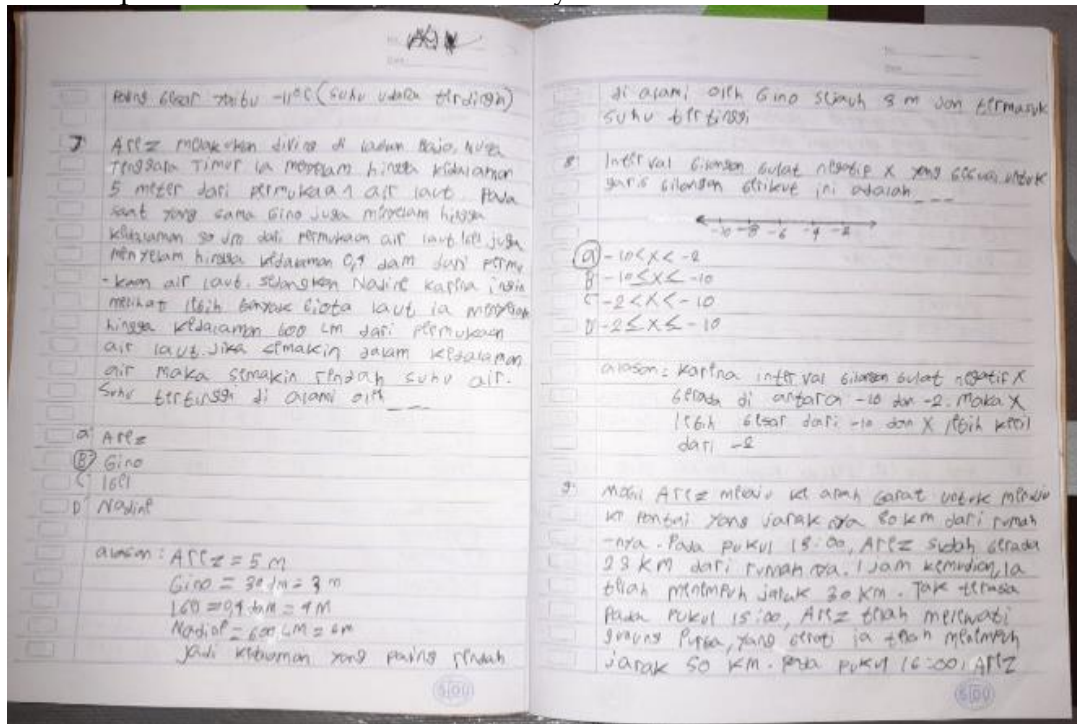 paling besar yaitu -11°C (suhu udara terdingin)
7. Arez melakukan diving di Labuan Bajo, Nusa
Tenggara Timur ia menyelam hingga kedalaman
5 meter dari permukaan air laut. Pada
saat yang sama Gino juga menyelam hingga
kedalaman 30 dm dari permukaan air laut. juga
menyelam hingga kedalaman 0,4 dam dari permu
-kaan air laut. sedangkan Nadine karena ingin
melihat lebih banyak biota laut ia menyelam
hingga kedalaman 600 cm dari permukaan
air laut. Jika semakin dalam kedalaman
air maka semakin rendah suhu air.
Suhu tertinggi di alami oleh ___
a. Arez
B. Gino
C.
D. Nadine
alasan : Arez = 5 m
Gino = 30 dm = 3 m
= 0,4 dam = 4 M
Nadine = 600 cM = 6m
Jadi kedalaman yang paling rendah
SIDU
di alami oleh Gino sejauh 3 m dan termasuk
suhu tertinggi
8. Interval bilangan bulat negatip x yang sesuai untuk
garis bilangan berikut ini adalah ___
-10 -8 -6 -4 -2
a. -10 < x < -2
B. -10 ≤ x ≤ -10
C. -2 < x < -10
D. -2 ≤ x ≤ -10
alasan : karena interval bilangan bulat negatif x
berada di antara -10 dan -2. Maka x
lebih besar dari -10 dan x lebih kecil
dari -2
9. Mobil Arez melaju ke arah barat untuk menuju
ke pantai yang jarak nya 80 km dari rumah
-nya. Pada pukul 13:00, Arez sudah berada
23 KM dari rumah nya. 1 Jam kemudian, ia
telah menempuh jarak 30 KM. Tak terasa
Pada pukul 15:00, Arez telah melewati
gunung Purba, yang berarti ia telah menempuh
jarak 50 KM. Pada pukul 16:00, Arez
SIDU